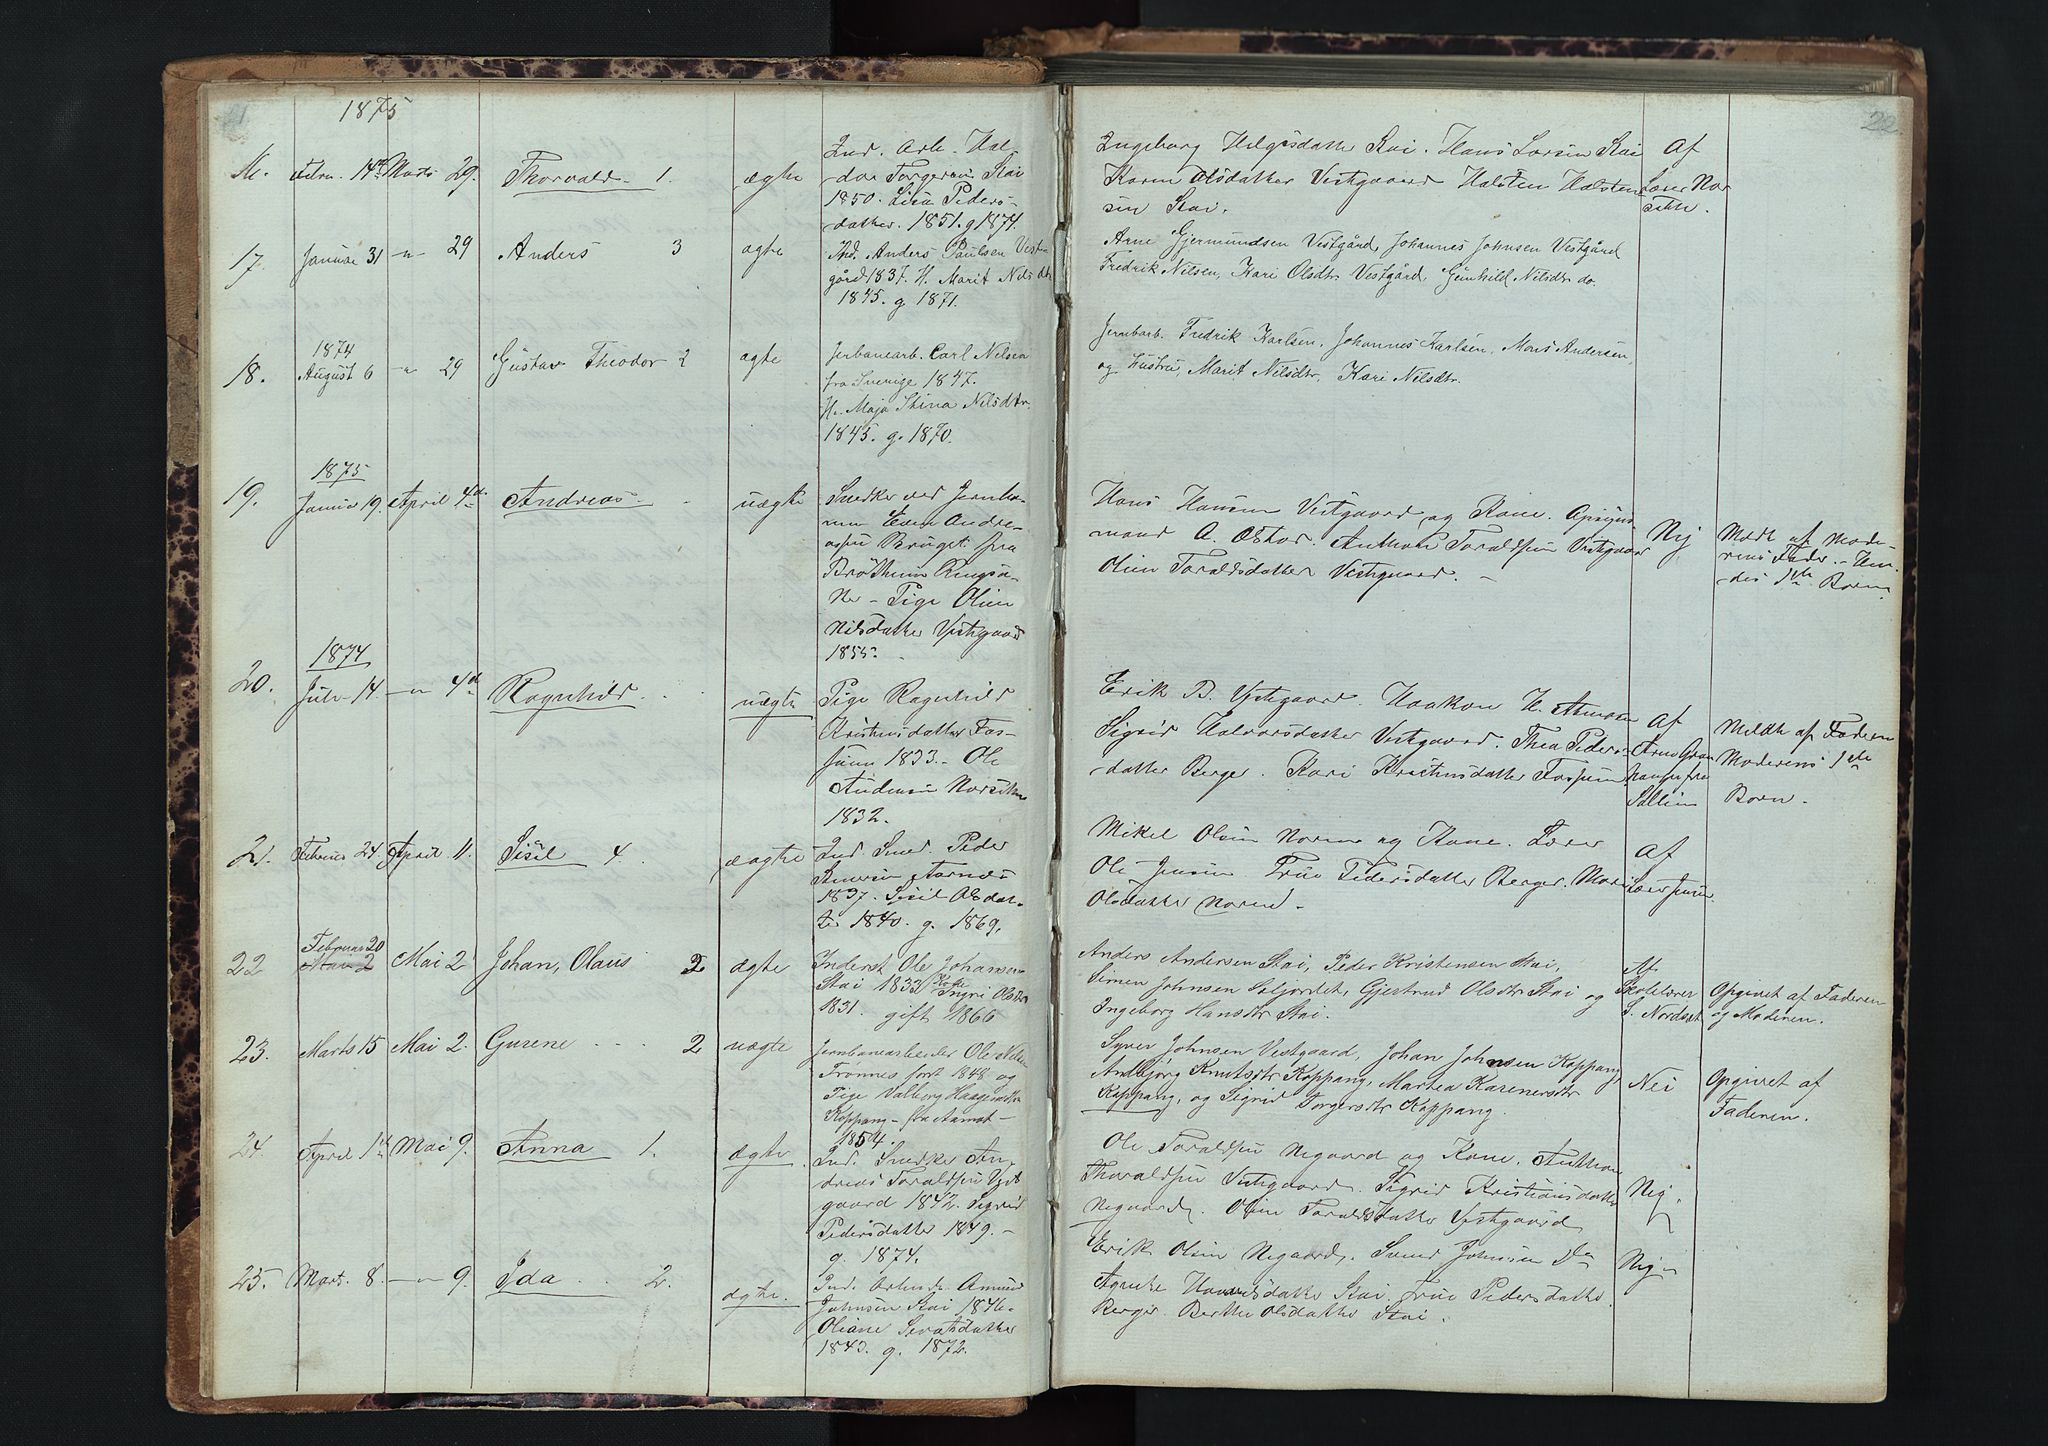 21
1875
22
Febru. 14de Marts 29. Thorvald 1. ægte
Ind. Arb. Hal-
dor Torgersen Stai
1850. Lisa Peders-
datter. 1851. g 1874.
Ingeborg Helgesdatter Stai. Hans Larsen Stai
Karen Olsdatter Vestgaard Halsten Halsten-
sen Stai.
Af
Lærer Nor
seth.
17 Januar 31 -"- 29 Anders 3 ægte
Ind. Anders Paulsen Vest-
gård 1837. H. Marit Nilsdtr
1845. g. 1871.
Arne Gjermundsen Vestgård, Johannes Johnsen Vestgård
Fredrik Nilsen, Kari Olsdtr Vestgård, Gunhild Nilsdtr do.
18. 1874
August 6 -"- 29 Gustav Theodor 2 ægte
Jerbanearb. Carl Nilsen
fra Sverige 1847.
H. Maja Stina Nilsdtr.
1845. g. 1870.
Jernbarb. Fredrik Karlsen, Johannes Karlsen, Mons Andersen
og Hustru, Marit Nilsdtr, Kari Nilsdtr.
19. 1875
Januar 19. April 4de Andreas uægte
Snedker ved Jernba-
nen Even Andre-
assen Bruget fra
Brøttum Ringsa-
ker - Pige Oline
Nilsdatter Vestgaard
1855
Hans Hansen Vestgaard og Kone. Opsyns-
mand A. Oshov. Anthon Toraldsen Vestgaard
Oline Toraldsdatter Vestgaard.
Nej
Meldt af Mode-
rens Fader. - Hen-
des 1ste Barn.
20. 1874
Juli 14 -"- 4de Ragnhild uægte
Pige Ragnhild
Kristensdatter Fos-
sum 1833. Ole
Andersen Norseth
1832.
Erik B. Vestgaard. Haakon H.
Sigrid Halvorsdatter Vestgaard. Thea Peders-
datter Berger. Kari Kristensdatter Fossum
Af
Meldt af Faderen
Moderens 1ste
Barn.
21. Februar 24 April 11. Sisil 4. ægte
Ind. Smed. Peder
1837. Sisil Olsdat-
ter 1840. g. 1869.
Mikel Olsen Noren og Kone. Lærer
Ole Jensen Frue Pedersdatter Berger. Mari
Olsdatter Noren.
Af
Lærer Jensen
22 Februar 20
Mai 2 Mai 2 Johan, Olaus 2 ægte
Inderst Ole Johansen
Stai 1833 Kone Ingri Olsdtr
1831. gift 1866
Anders Andersen Stai, Peder Kristensen Stai,
Simen Johnsen Soljordet, Gjertrud Olsdtr Stai og
Ingeborg Hansdtr Stai.
Af
Skolelærer
S. Nordset
Opgivet af Faderen
og Moderen.
23. Marts 15 Mai 2. Gurene 2 uægte
Jernbanearbeider Ole Nilsen
Trønnes født 1848 og
Pige Valborg Haagensdtr
Koppang - fra Aamot -
1854.
Syver Johnsen Vestgaard, Johan Johnsen Koppang
Andbjørg Knutsdtr Koppang, Martea Karenersdtr
Koppang, og Sigrid Torgersdtr Koppang.
Nei
Opgivet af
Faderen.
24. April 1ste Mai 9. Anna 1. ægte
Ind. Snedker An-
dreas Toraldsen Vest
gaard 1842. Sigrid
Pedersdatter 1849. -
g. 1874.
Ole Toraldsen Negaard og Kone. Anthon
Thoraldsen Vestgaard. Sigrid Kristiansdatter
Negaard. Oline Toraldsdatter Vestgaard
Nej.
25. Marts 8. -"- 9. Ida 2. ægte.
Ind. Arbeider Amund
Johnsen Stai 1846.
Oliane Sivertsdatter
1843. g. 1872.
Erik Olsen Negaard. Svend Johnsen Do
Agnete Hansdatter Stai. Frue Pedersdatter
Berger. Berthe Olsdatter Stai.
Nej